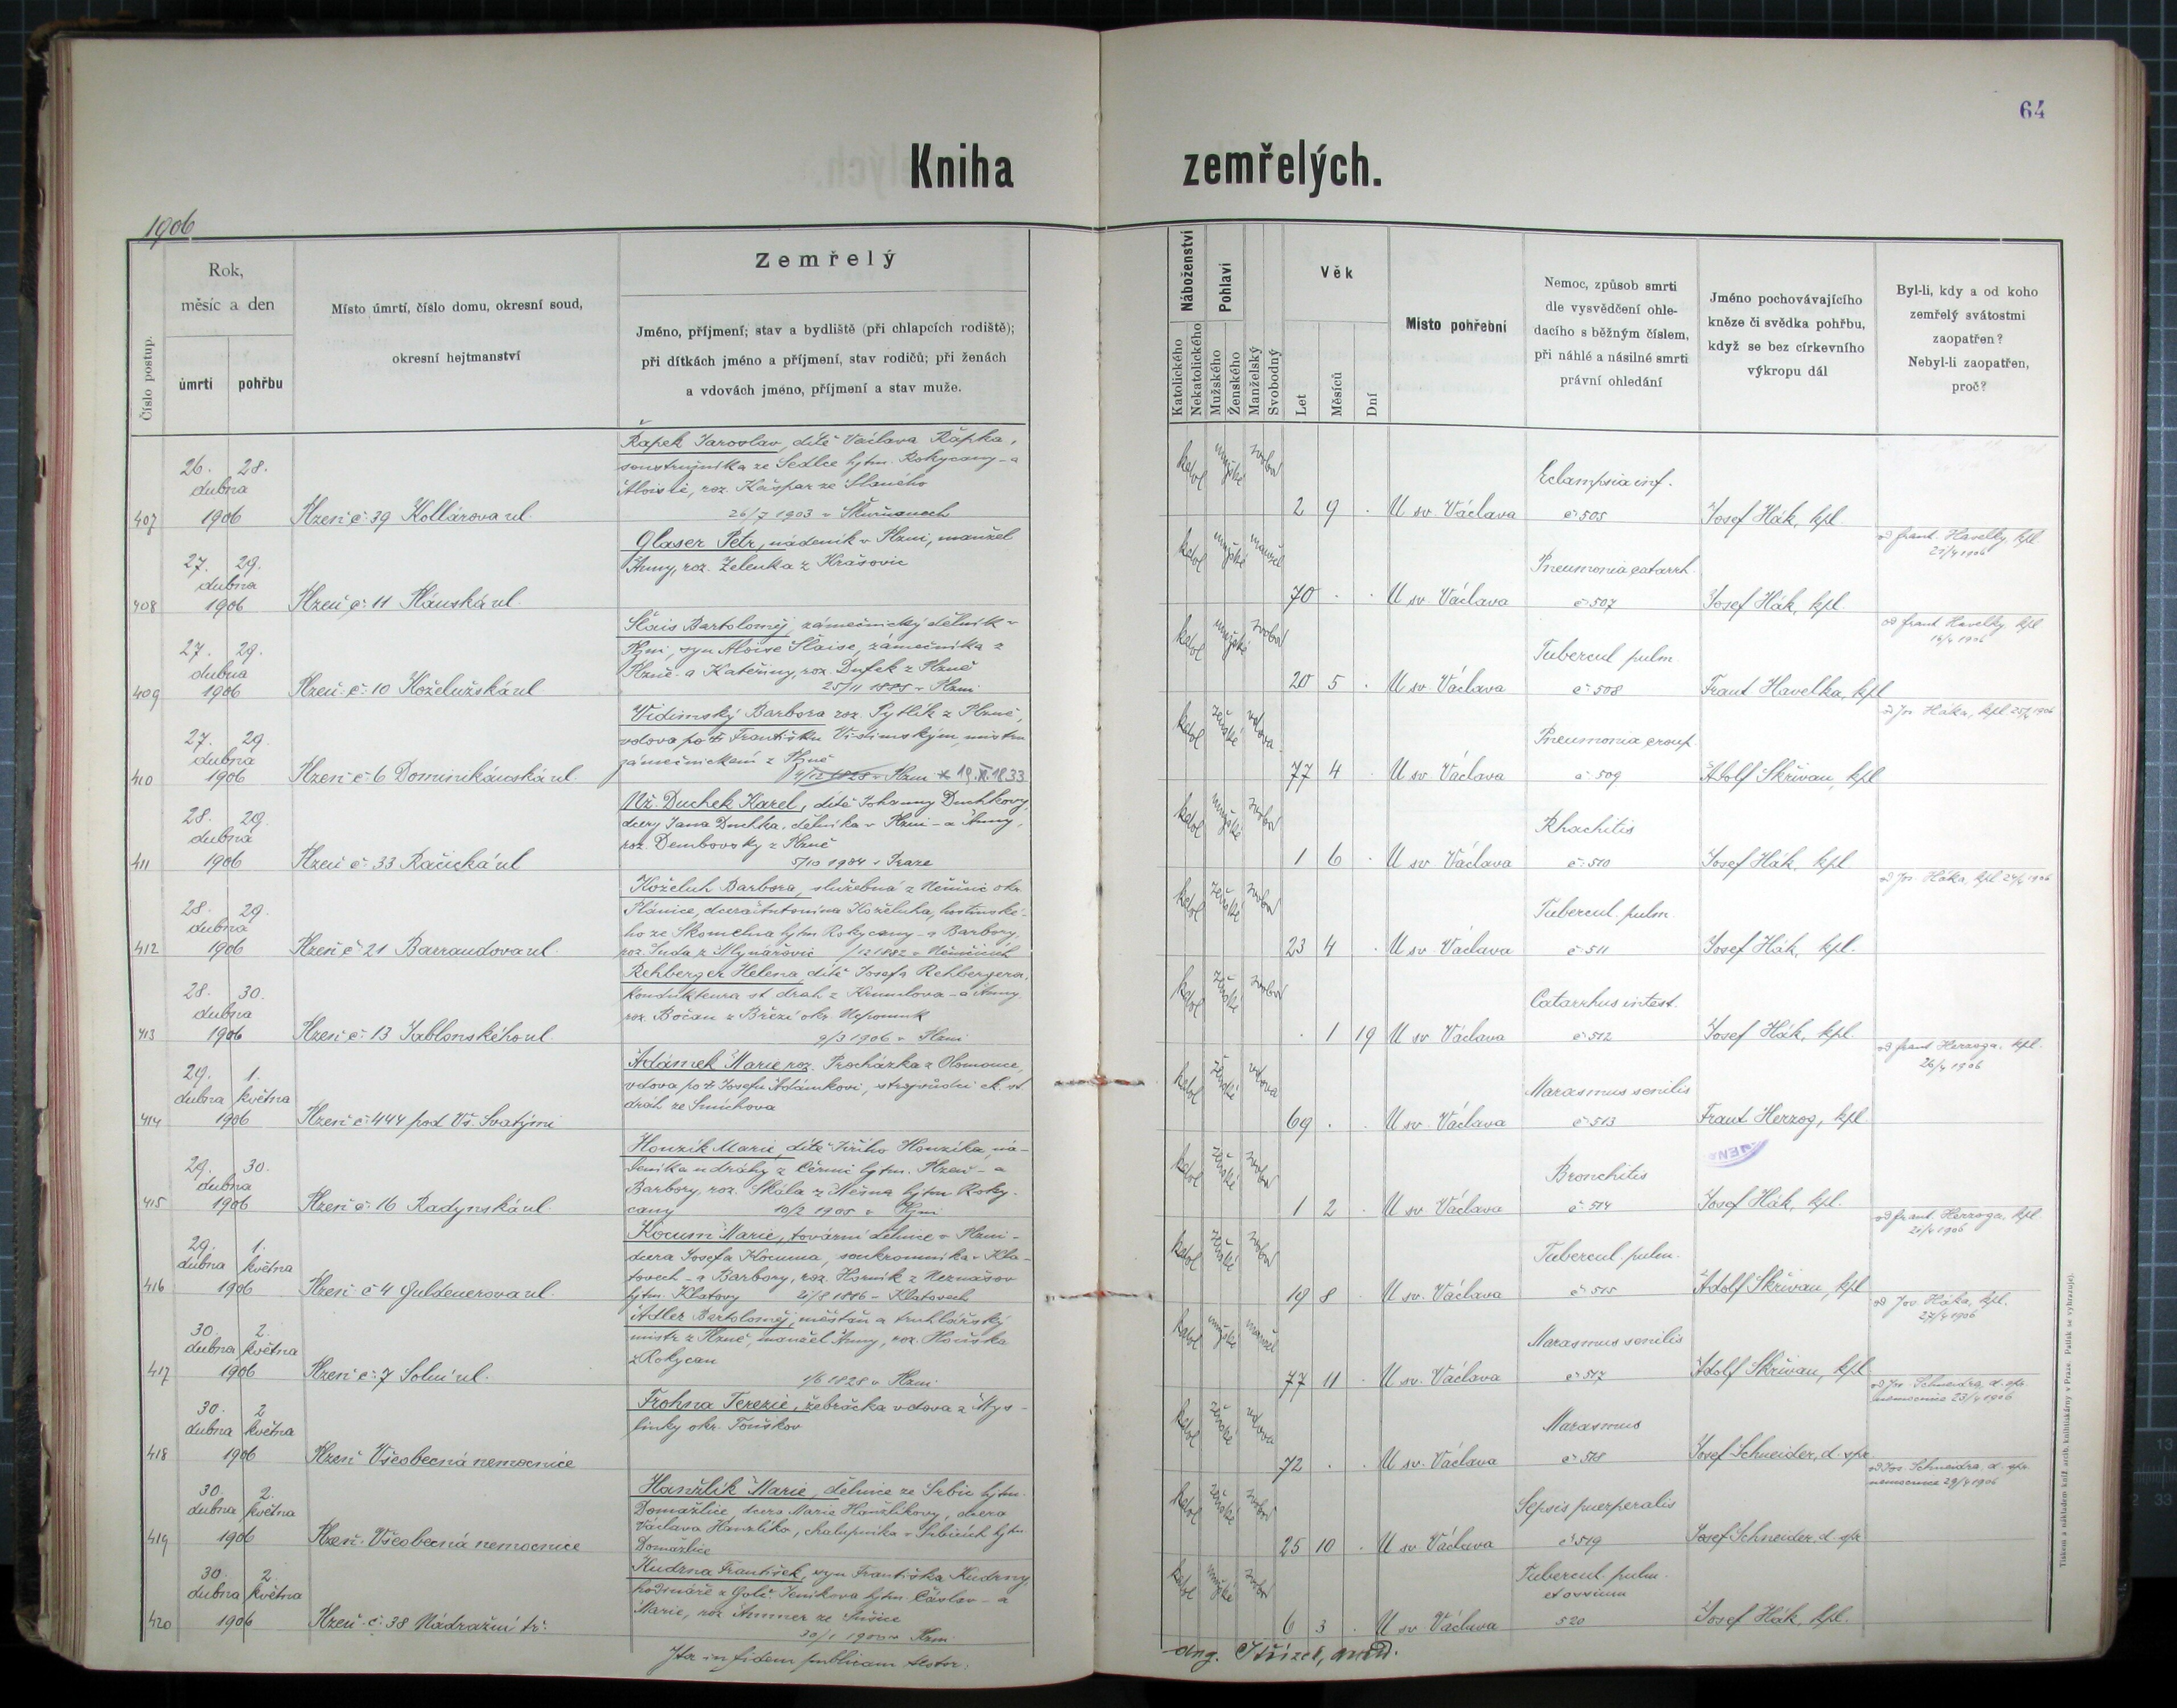 64
Kniha zemřelých.
1906
Číslo postup.
Rok,
měsíc a den
úmrtí
pohřbu
Místo úmrtí, číslo domu, okresní soud,
okresní hejtmanství
Zemřelý
Jméno, příjmení; stav a bydliště (při chlapcích rodiště);
při dítkách jméno a příjmení, stav rodičů; při ženách
a vdovách jméno, příjmení a stav muže.
Náboženství
Katolického
Nekatolického
Pohlaví
Mužského
Ženského
Manželský
Svobodný
Věk
Let
Měsíců
Dní
Místo pohřební
Nemoc, způsob smrti
dle vysvědčení ohle-
dacího s běžným číslem,
při náhlé a násilné smrti
právní ohledání
Jméno pochovávajícího
kněze či svědka pohřbu,
když se bez církevního
výkropu dál
Byl-li, kdy a od koho
zemřelý svátostmi
zaopatřen?
Nebyl-li zaopatřen,
proč?
407
26. 28.
dubna
1906
Plzeň č: 39 Kollárova ul.
Řapek Jaroslav, dítě Václava Řápka,
soustružníka ze Sedlce hjtm. Rokycany - a
Aloisie, roz. Kašpar ze Slaného
26/7 1903 v Skvrňanech
katol mužské svobod
2 9 . U sv. Václava
Eclampsia inf.
č: 505
Josef Hák, kpl.
408
27. 29.
dubna
1906
Plzeň č: 11 Plánská ul.
Glaser Petr, nádeník v Plzni, manžel
Anny, roz. Zelenka z Krašovic
katol mužské manžel
70 . . U sv. Václava
Pneumonia catarrh.
č: 507
Josef Hák, kpl.
od frant. Havelky, kpl
409
27. 29.
dubna
1906
Plzeň č: 10 Koželužská ul
Šlais Bartoloměj, zámečnický dělník v
Plzni, syn Aloise Šlaise, zámečníka z
Plzně a Kateřiny, roz. Dufek z Plzně
25/11 1885 v Plzni
katol mužské svobod
20 5 . U sv. Václava
Tubercul pulm.
č: 508
Frant Havelka, kpl
od frant Havelky, kpl
410
27. 29.
dubna
1906
Plzeň č: 6 Dominikánská ul.
Vidimský Barbora roz. Pytlík z Plzně,
vdova po † Františku Vidimským, mistru
zámečnickém z Plzně
v Plzni * 19. XI. 1833
katol ženské vdova
77 4 U sv. Václava
Pneumonia croup.
č: 509
Adolf Skřivan, kpl
od Jos Háka, kpl 25/4 1906
411
28. 29.
dubna
1906
Plzeň č: 33 Račická ul
Nž. Duchek Karel, dítě Johanny Duchkovy,
dcery Jana Duchka, dělníka v Plzni - a Anny,
roz. Dembovsky z Plzně
5/10 1904 v Praze
katol mužské svobod
1 6 . U sv Václava
Rhachitis
č: 510
Josef Hák, kpl
412
28. 29.
dubna
1906
Plzeň č: 21 Barrandova ul.
Koželuh Barbora, služebná z Němčic okr.
Plánice, dcera Antonína Koželuha, hostinské-
ho ze Skomelna hjtm Rokycany - a Barbory,
roz. Suda z Mlynářovic /12 1882 v Němčicích
katol ženské svobod
23 4 . U sv Václava
Tubercul. pulm
č: 511
Josef Hák, kpl.
od Jos. Háka, kpl 24/4 1906
413
28. 30.
dubna
1906
Plzeň č: 13 Jablonského ul.
Rehberger Helena dítě Josefa Rehbergera,
kondukteura st drah z Krumlova - a Anny
roz. Bočan z Březí okr. Nepomuk
9/3 1906 v Plzni
katol ženské svobod
. 1 19 U sv Václava
Catarrhus intest.
č: 512
Josef Hák, kpl.
414
29. 1.
dubna května
1906
Plzeň č: 444 pod Vš. Svatými
Adámek Marie roz. Procházka z Olomouce,
vdova po † Josefu Adámkovi, strojvůdci ck. st
dráh ze Smíchova
katol ženské vdova
69 . . U sv. Václava
Marasmus senilis
č: 513
Frant Herzog, kpl.
od frant Herzoga, kpl.
26/4 1906
415
29. 30.
dubna
1906
Plzeň č: 16 Radynská ul.
Honzík Marie, dítě Jiřího Honzíka, ná-
deníka u dráhy z hjtm. Plzeň - a
Barbory, roz. Skála z hjtm Roky-
cany 10/2 1905 v Plzni
katol ženské svobod
1 2 . U sv. Václava
Bronchitis
č: 514
Josef Hák, kpl.
416
29. 1.
dubna května
1906
Plzeň č 4 Guldenerova ul.
Kocum Marie, tovární dělnice v Plzni -
dcera Josefa Kocuma, soukromníka v Kla-
tovech - a Barbory, roz. Horník z
hjtm. Klatovy 21/8 1886 v Klatovech
katol ženské svobod
19 8 . U sv. Václava
Tubercul. pulm.
č: 515
Adolf Skřivan, kpl
od frant. Herzoga, kpl.
417
30. 2.
dubna května
1906
Plzeň č: 7 Solní ul.
Adler Bartoloměj, měšťan a truhlářský
mistr z Plzně, manžel Anny, roz. Houška
z Rokycan
1/6 1828 v Plzni
katol mužské manžel
77 11 . U sv. Václava
Marasmus senilis
č: 517
Adolf Skřivan, kpl
od Jos Háka, kpl.
27/4 1906
418
30. 2
dubna května
1906
Plzeň Všeobecná nemocnice
Frohna Terezie, žebračka vdova z Mys-
linky okr. Touškov
katol ženské vdova
72 . . U sv. Václava
Marasmus
č: 518
Josef Schneider, d. spr
od Jos. Schneidra, d. spr.
nemocnice 23/4 1906
419
30. 2.
dubna května
1906
Plzeň. Všeobecná nemocnice
Hanzlík Marie, dělnice ze Srbic hjtm
Domažlice, dcera Marie Hanzlíkovy, dcera
Václava Hanzlíka, chalupníka v Srbicích hjtm
Domažlice
katol ženské svobod
25 10 . U sv Václava
Sepsis puerperalis
č 519
Josef Schneider, d. spr
od Jos. Schneidra, d. spr.
nemocnice 29/4 1906
420
30. 2.
dubna května
1906
Plzeň č: 38 Nádražní tř:
Kudrna František, syn Františka Kudrny,
hodináře z Golč. Jeníkova hjtm Čáslav - a
Marie, roz Ammer ze Sušice
30/1 1900 v Plzni
katol mužské svobod
6 3 . U sv Václava
Tubercul. pulm.
et ossium
520
Josef Hák, kpl.
Ita in fidem publicam testor:
Tiskem a nákladem kníž. arcib. knihtiskárny v Praze. Patisk se vyhrazuje.